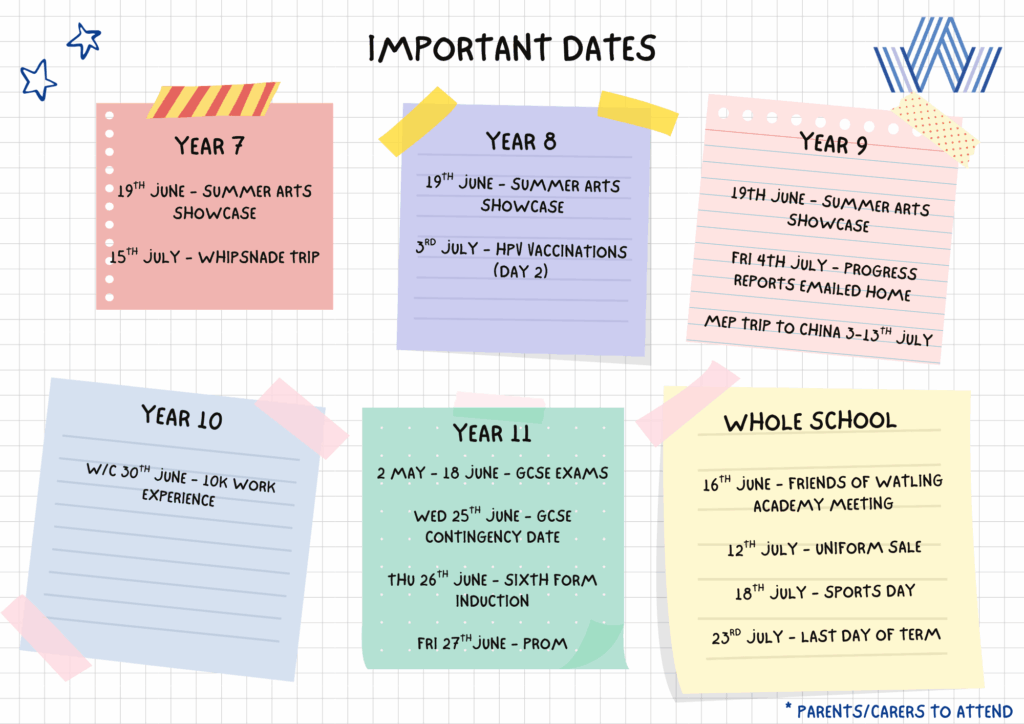 IMPORTANT DATES
YEAR 7
19TH JUNE - SUMMER ARTS
SHOWCASE
15TH JULY - WHIPSNADE TRIP
YEAR 8
19TH JUNE - SUMMER ARTS
SHOWCASE
3RD JULY - HPV VACCINATIONS
(DAY 2)
YEAR 9
19TH JUNE - SUMMER ARTS
SHOWCASE
FRI 4TH JULY - PROGRESS
REPORTS EMAILED HOME
MEP TRIP TO CHINA 3-13TH JULY
YEAR 10
W/C 30TH JUNE - 10K WORK
EXPERIENCE
YEAR 11
2 MAY - 18 JUNE - GCSE EXAMS
WED 25TH JUNE - GCSE
CONTINGENCY DATE
THU 26TH JUNE - SIXTH FORM
INDUCTION
FRI 27TH JUNE - PROM
WHOLE SCHOOL
16TH JUNE - FRIENDS OF WATLING
ACADEMY MEETING
12TH JULY - UNIFORM SALE
18TH JULY - SPORTS DAY
23RD JULY - LAST DAY OF TERM
* PARENTS/CARERS TO ATTEND